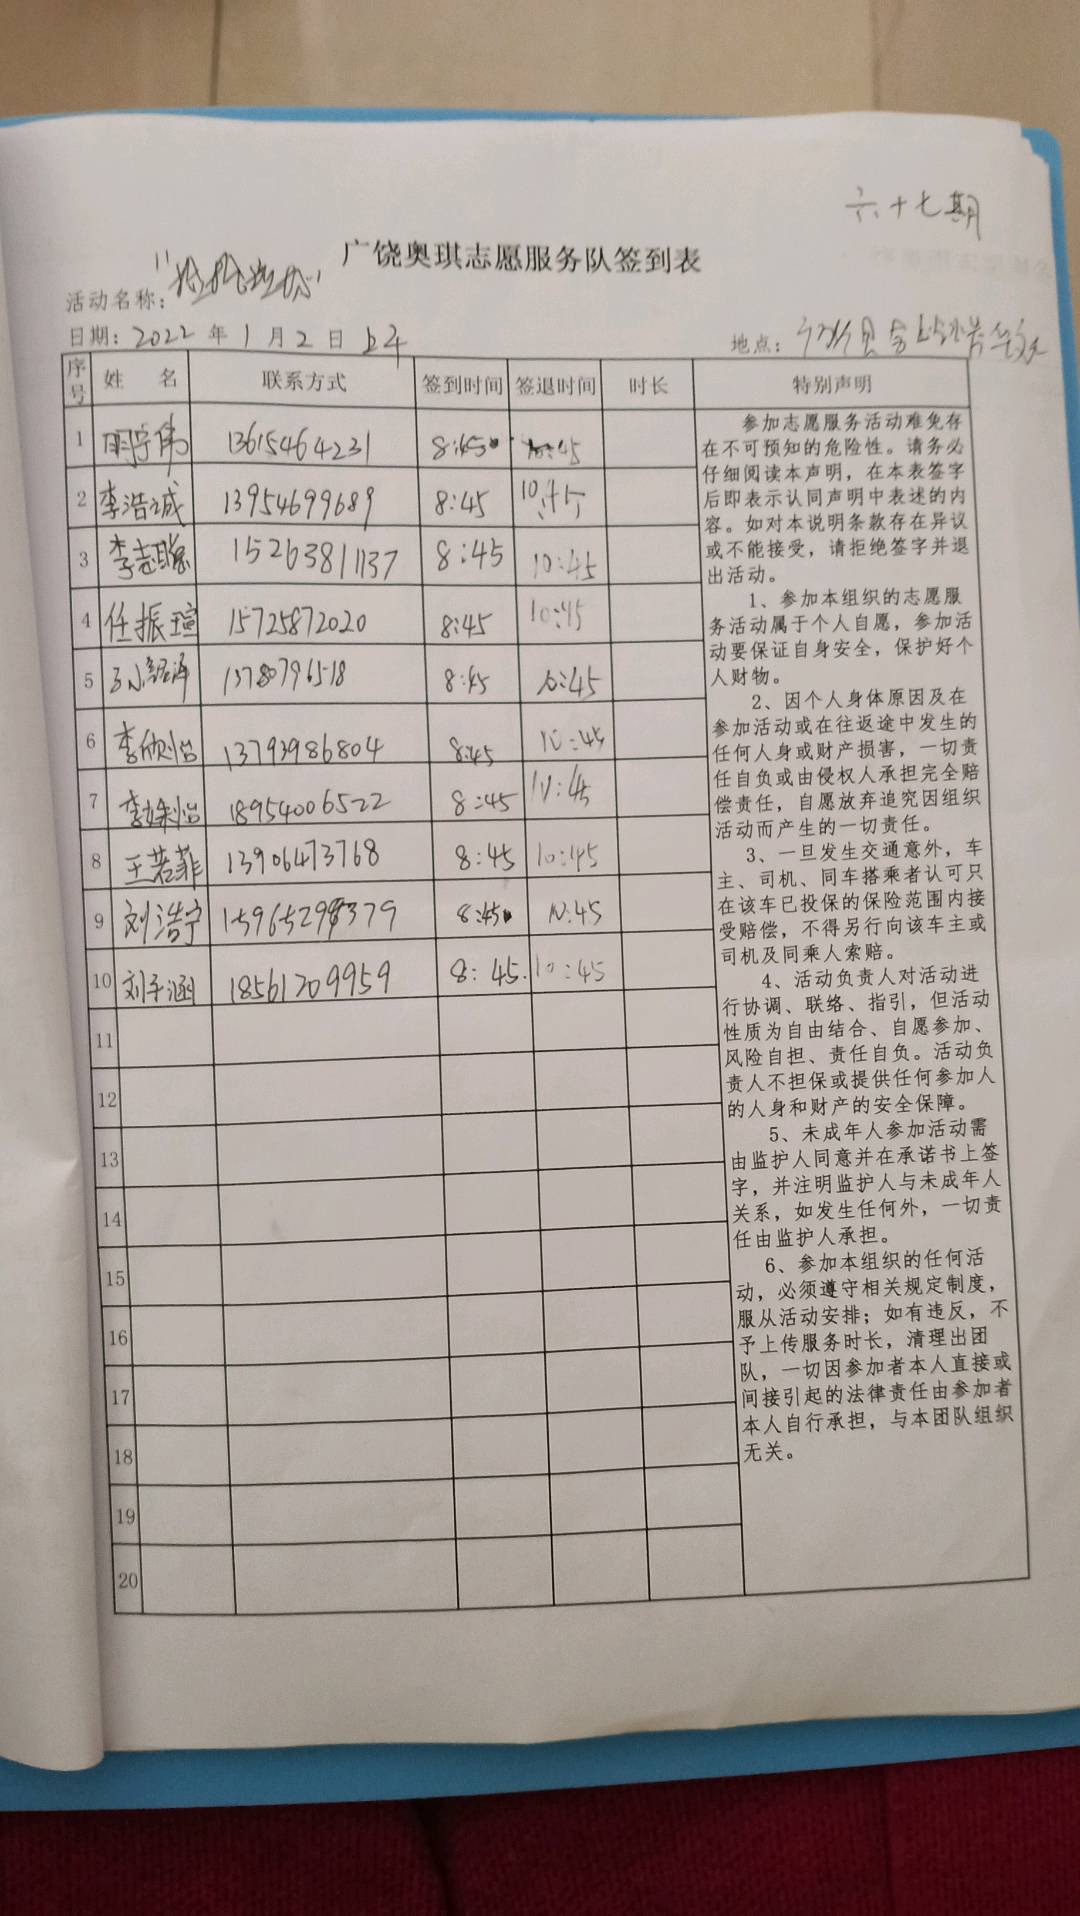 六十七期
广饶奥琪志愿服务队签到表
活动名称：
日期：2022 年 1 月 2 日 上午
地点：
序号 姓名 联系方式 签到时间 签退时间 时长 特别声明
1 明宇伟 13615464231 8:45 10:45
2 李浩诚 13954699689 8:45 10:45
3 李志聪 15263811137 8:45 10:45
4 任振瑄 15725872020 8:45 10:45
5 13780796518 8:45 10:45
6 李欣怡 13793986804 8:45 10:45
7 李姝怡 18954006522 8:45 10:45
8 王若菲 13906473768 8:45 10:45
9 刘浩宁 15965298379 8:45 10:45
10 刘子涵 18561209959 8:45 10:45
11
12
13
14
15
16
17
18
19
20
参加志愿服务活动难免存
在不可预知的危险性。请务必
仔细阅读本声明，在本表签字
后即表示认同声明中表述的内
容。如对本说明条款存在异议
或不能接受，请拒绝签字并退
出活动。
1、参加本组织的志愿服
务活动属于个人自愿，参加活
动要保证自身安全，保护好个
人财物。
2、因个人身体原因及在
参加活动或在往返途中发生的
任何人身或财产损害，一切责
任自负或由侵权人承担完全赔
偿责任，自愿放弃追究因组织
活动而产生的一切责任。
3、一旦发生交通意外，车
主、司机、同车搭乘者认可只
在该车已投保的保险范围内接
受赔偿，不得另行向该车主或
司机及同乘人索赔。
4、活动负责人对活动进
行协调、联络、指引，但活动
性质为自由结合、自愿参加、
风险自担、责任自负。活动负
责人不担保或提供任何参加人
的人身和财产的安全保障。
5、未成年人参加活动需
由监护人同意并在承诺书上签
字，并注明监护人与未成年人
关系，如发生任何外，一切责
任由监护人承担。
6、参加本组织的任何活
动，必须遵守相关规定制度，
服从活动安排；如有违反，不
予上传服务时长，清理出团
队，一切因参加者本人直接或
间接引起的法律责任由参加者
本人自行承担，与本团队组织
无关。